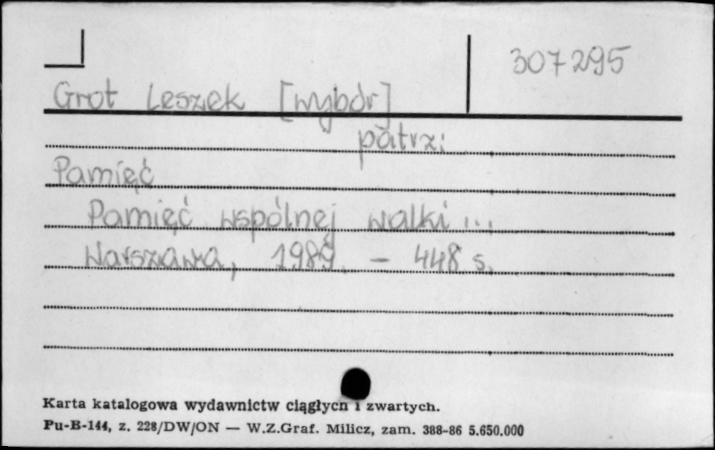 307295
Grot Leszek [wybór]
patrz:
Pamięć
Pamięć wspólnej walki...
Warszawa, 1989. - 448 s.
Karta katalogowa wydawnictw ciągłych i zwartych.
Pu-B-144, z. 228/DW/ON — W.Z.Graf. Milicz, zam. 388-86 5.650.000